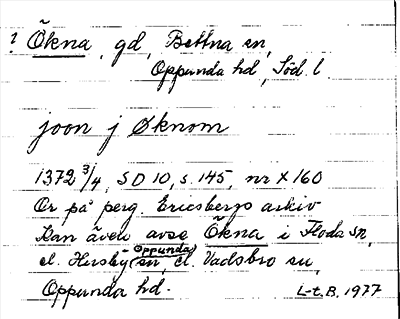 ? Ökna, gd, Bettna sn,
Oppunda hd, Söd. l.
joon j Øknom
1372 3/4, SD 10, s. 145, nr X 160
Or på perg. Ericsbergs arkiv
Kan även avse Ökna i Floda sn,
el. Husby (Oppunda) sn, el. Vadsbro sn,
Oppunda hd.
L-t. B. 1977